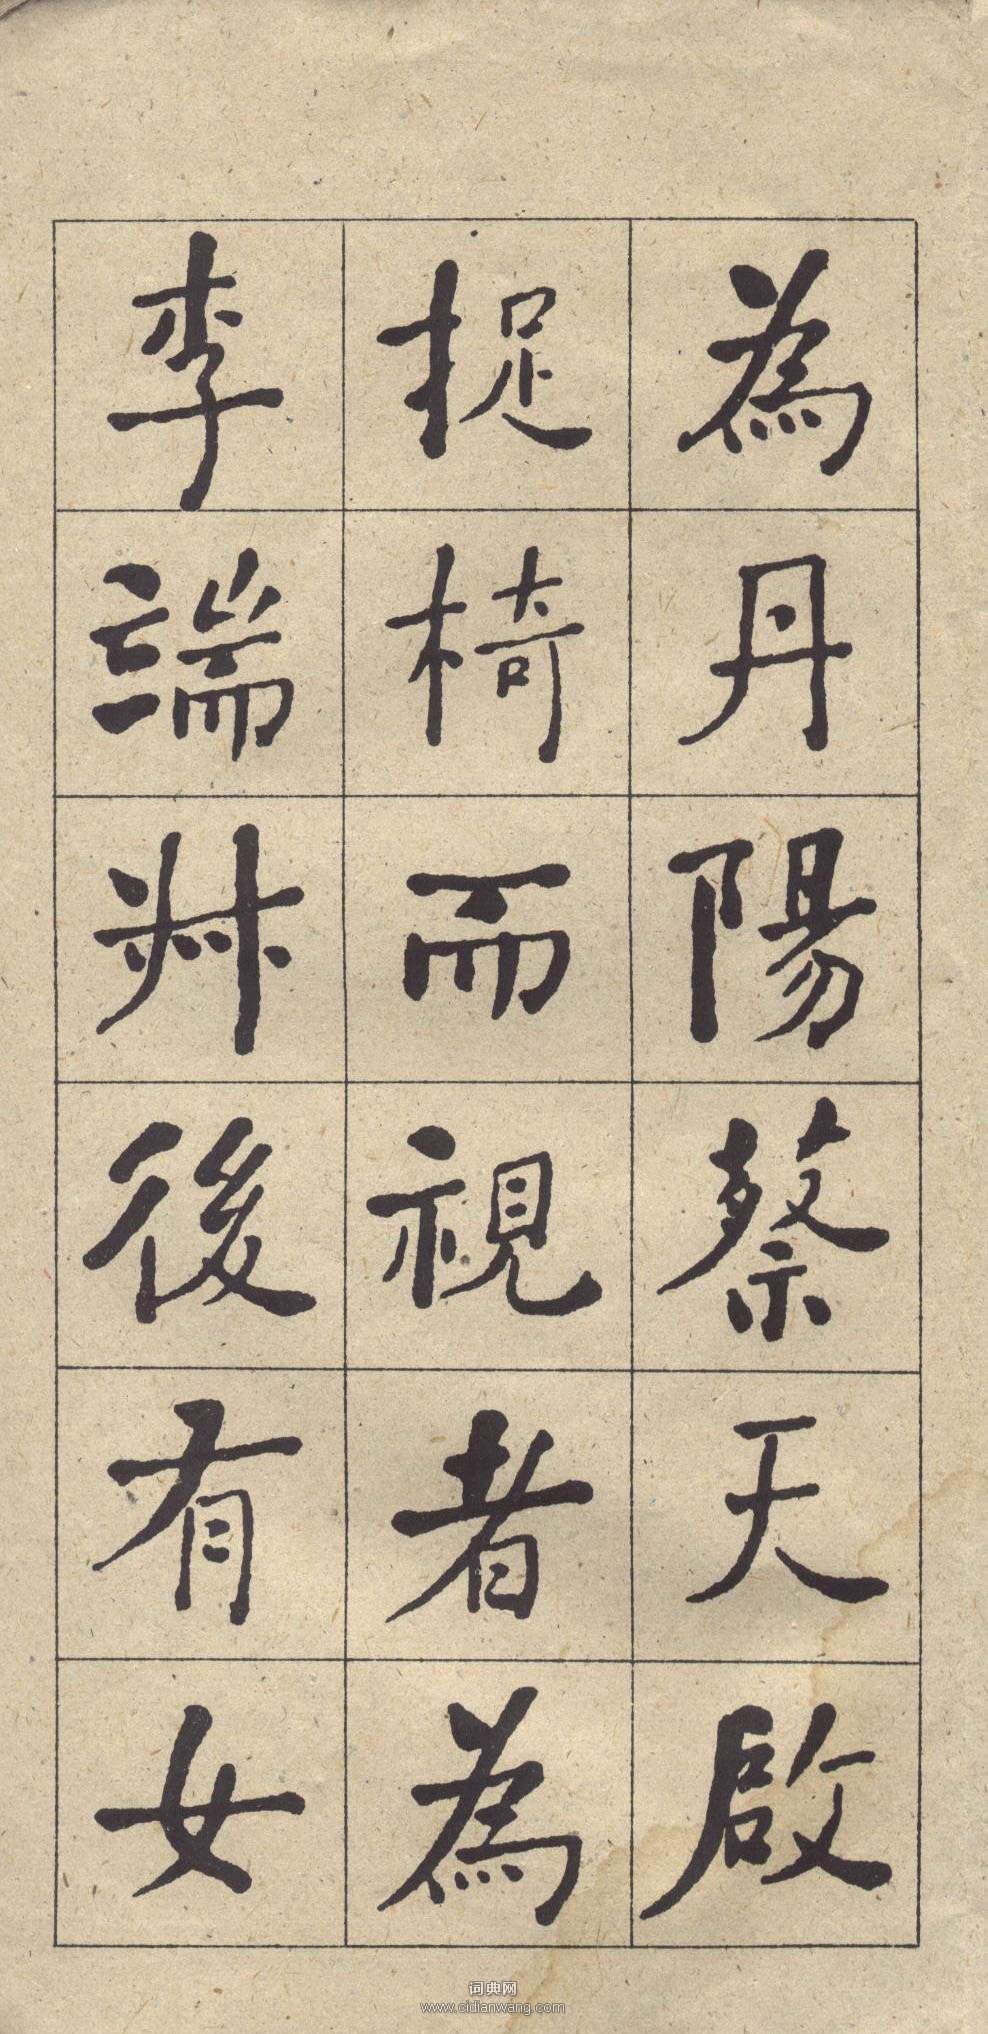 為丹陽蔡天啟
捉椅而視者為
李端叔後有女
词典网
www.cidianwang.com